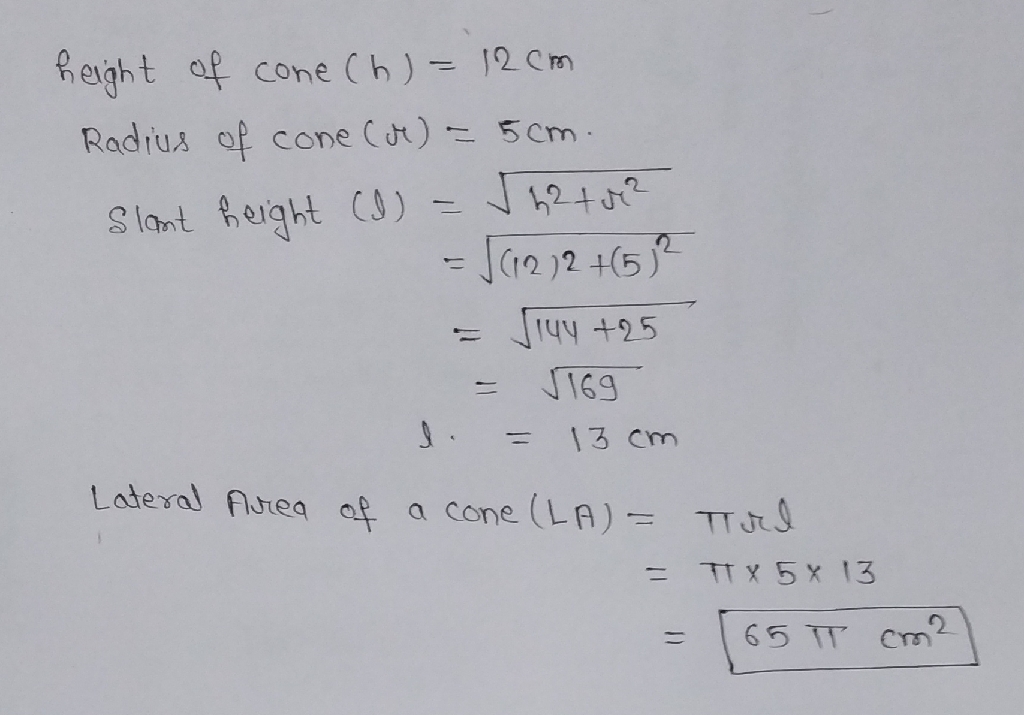 height of cone (h) = 12 cm
Radius of cone (r) = 5cm.
Slant height (l) = √h2+r²
= √(12)2+(5)²
= √144+25
= √169
l. = 13 cm
Lateral Area of a cone (LA) = πrl
= π x 5 x 13
= 65 π cm²